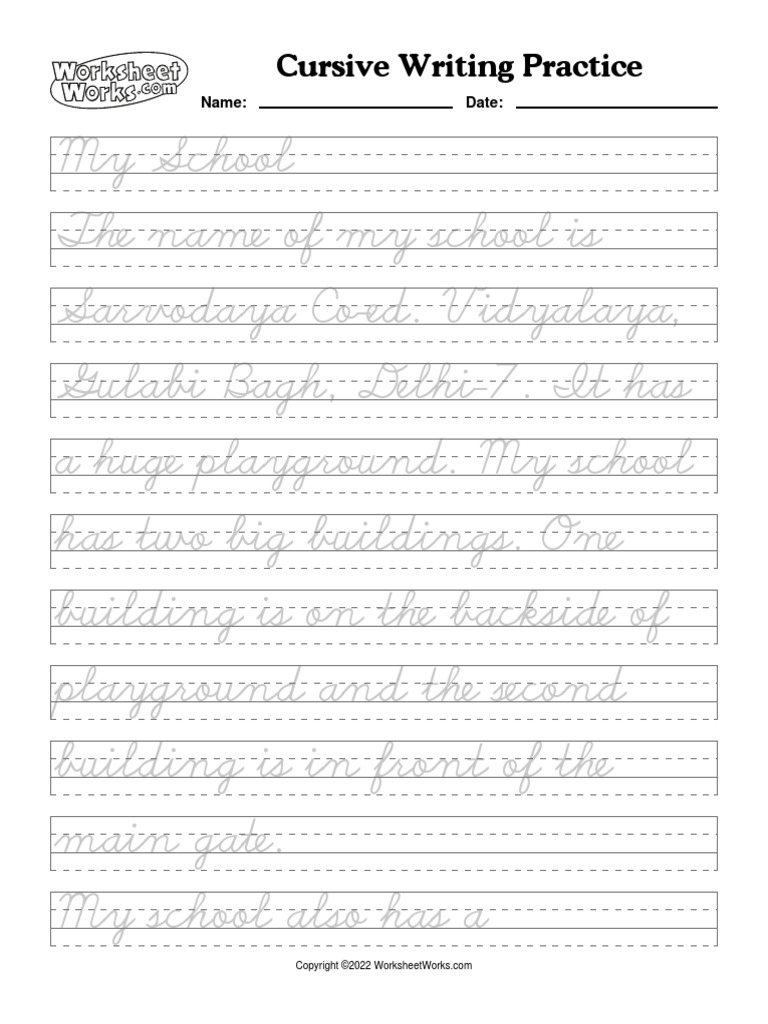 Worksheet
Works.com
Cursive Writing Practice
Name: Date:
My School
The name of my school is
Sarvodaya Co-ed. Vidyalaya,
Gulabi Bagh, Delhi-7. It has
a huge playground. My school
has two big buildings. One
building is on the backside of
playground and the second
building is in front of the
main gate.
My school also has a
Copyright ©2022 WorksheetWorks.com